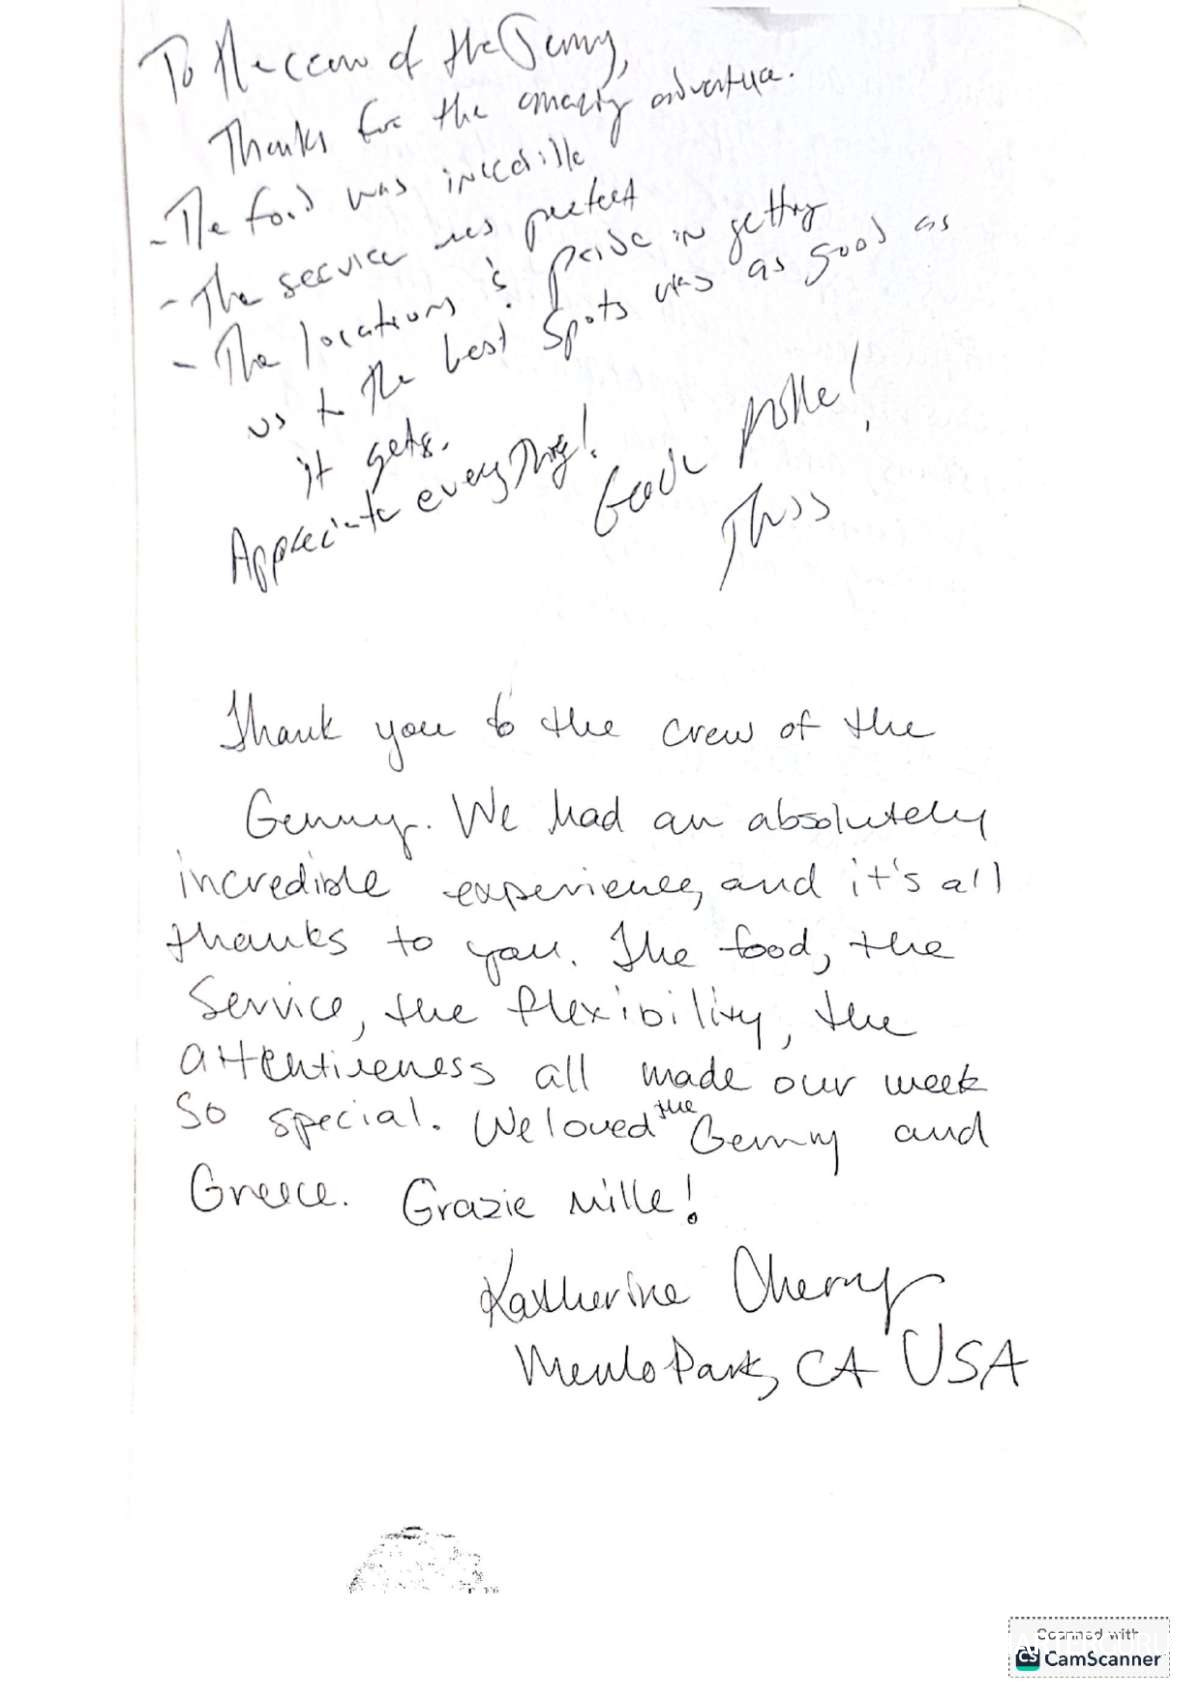 To the crew of the Jenny,
Thanks for the amazing adventure.
- The food was incredible
- The service was perfect
- The locations & pride in getting
us to the best spots was as good as
it gets.
Appreciate everything!
Mille!
Thank you to the crew of the
Genny. We had an absolutely
incredible experience, and it's all
thanks to you. The food, the
Service, the flexibility, the
attentiveness all made our week
So special. We loved the Genny and
Greece. Grazie Mille!
Katherine Cherny
Menlo Park, CA USA
Scanned with
CS CamScanner